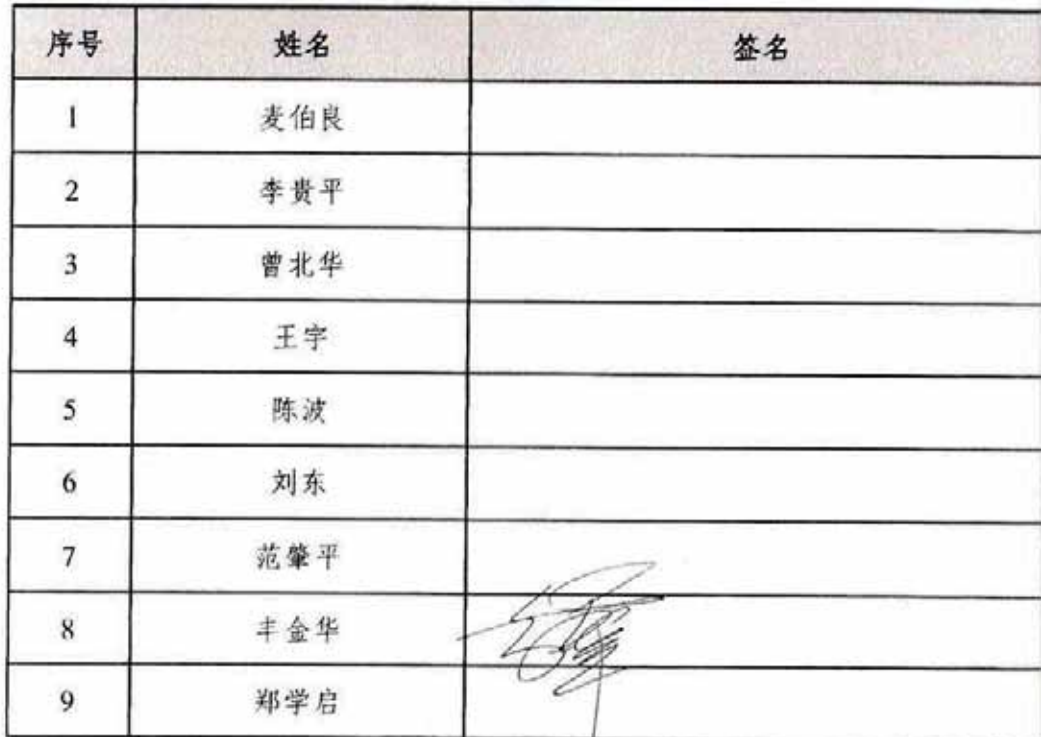 序号 姓名 签名
1 麦伯良
2 李贵平
3 曾北华
4 王宇
5 陈波
6 刘东
7 范肇平
8 丰金华
9 郑学启